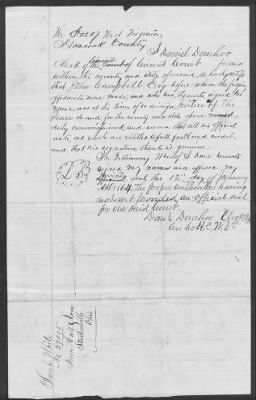 The State of West Virginia,
Hancock County
I Daniel Donehoo
Clerk of the Circuit Court
within the county and state aforesaid, do hereby certify
that Campbell Esqr before whom the foregoing
affidavits were made and who has thereunto signed his
name was at the time of so doing Justice of the
Peace in and for the county and state above named
duly commissioned and sworn and all his official
acts as such are entitled to full faith and credit,
and that his signature thereto is genuine
In Testimony Whereof I have hereunto
signed my name and affixed my
private seal this 12th day of January
1864, the proper authorities having
not yet provided an official seal
for our said Court.
Danl Donehoo Clerk
C. C. H. C. W. Va
Sarah White
No
from
Ohio